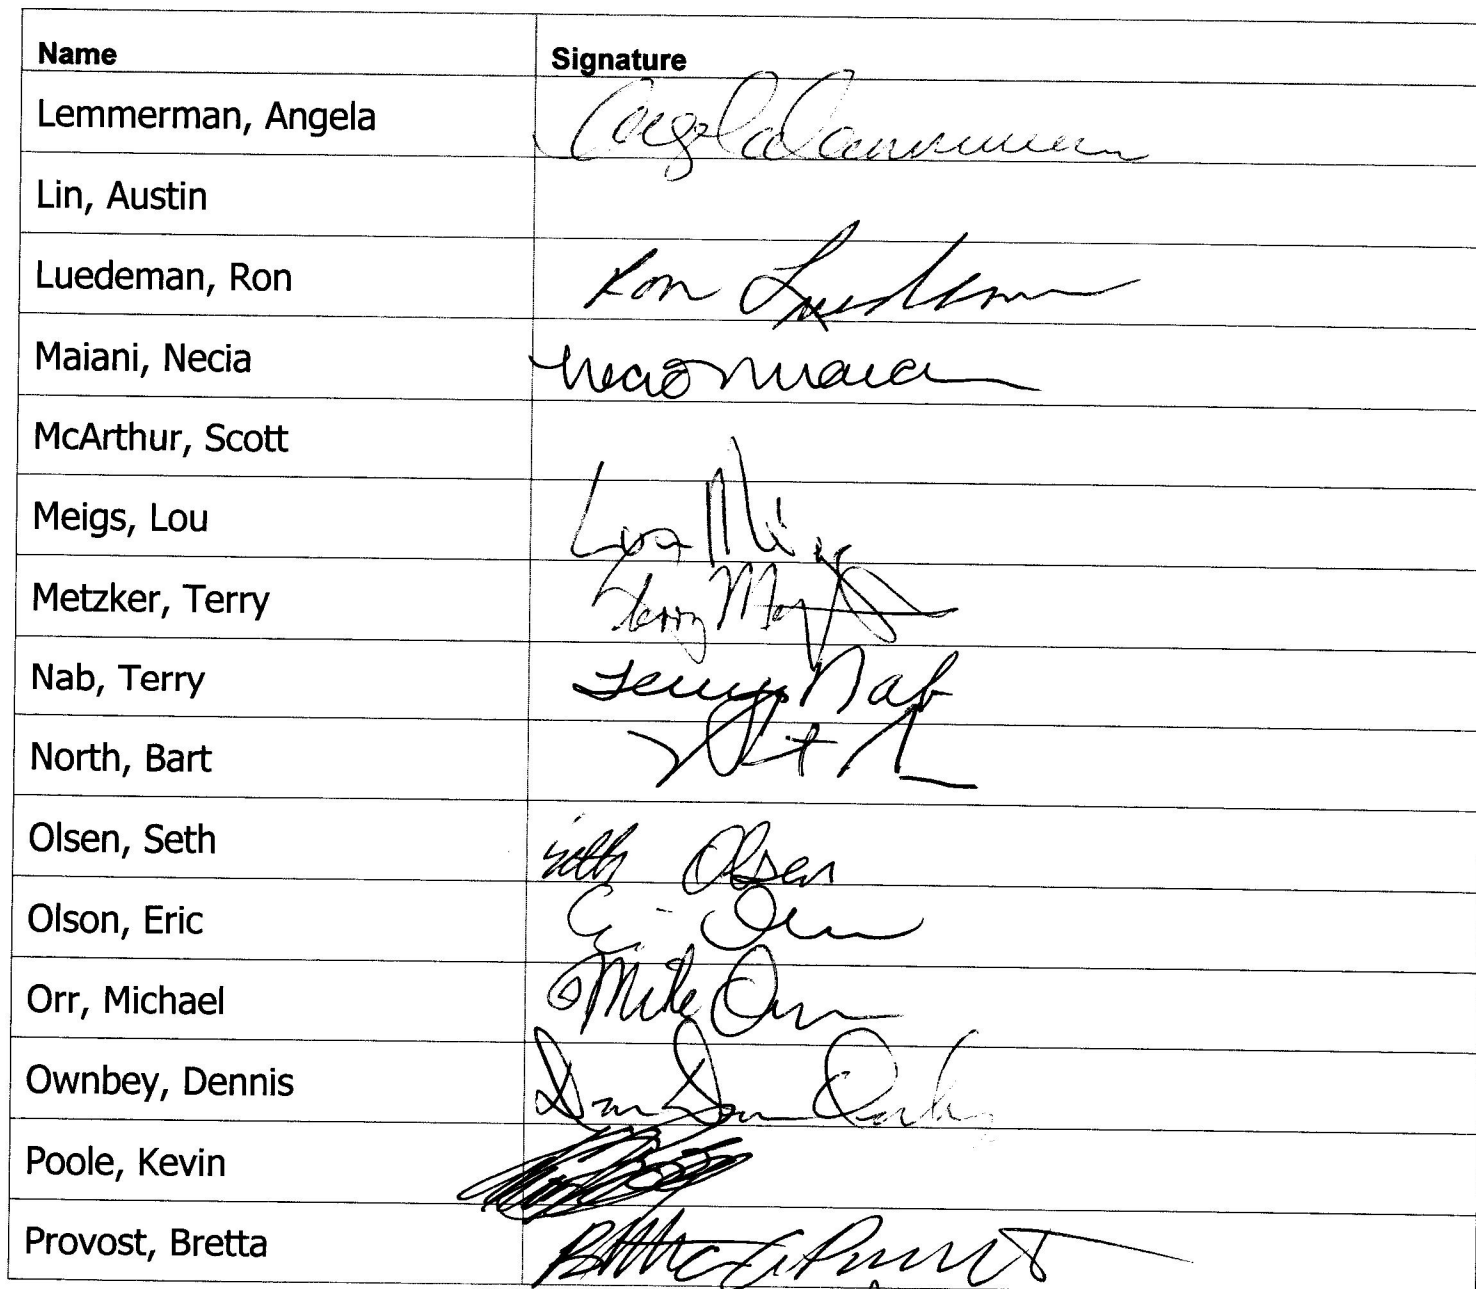 Name Signature
Lemmerman, Angela Angela
Lin, Austin
Luedeman, Ron Ron Luedeman
Maiani, Necia Necia
McArthur, Scott
Meigs, Lou Lou
Metzker, Terry Terry
Nab, Terry Terry Nab
North, Bart
Olsen, Seth Seth Olsen
Olson, Eric
Orr, Michael Mike Orr
Ownbey, Dennis
Poole, Kevin
Provost, Bretta Provost